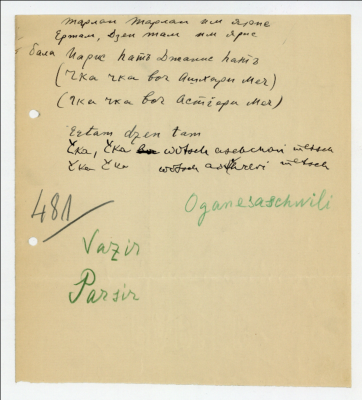 тарлан тарлан им ярие
Ертам, Дзен там им ярис
бала Иарис hатъ Джанис hатъ
(Чка чка воч Ашхари меч)
(Чка чка воч Астгери меч)
Ertam dzen tam
Čka, Čka wotsch
Čka Čka wotsch metsch
481
Oganesaschwili
Vazir
Parsir